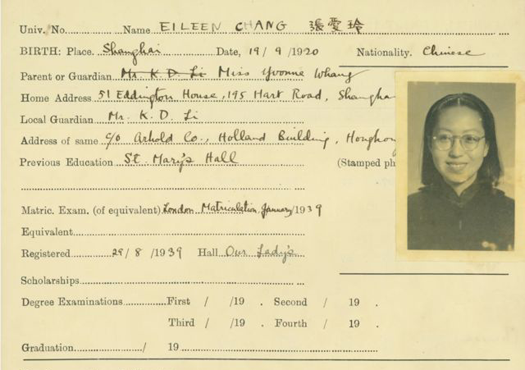 Univ. No. Name EILEEN CHANG 張愛玲
BIRTH: Place. Shanghai Date, 19/9/1920 Nationality. Chinese
Parent or Guardian Mr. K. D. Li Miss Yvonne Whang
Home Address 51 Eddington House, 195 Hart Road, Shangha
Local Guardian Mr. K. D. Li
Address of same c/o Arhold Co., Holland Building, Hongkon
Previous Education St. Mary's Hall (Stamped ph
Matric. Exam. (of equivalent) London Matriculation January/1939
Equivalent
Registered 29/8/1939 Hall Our Lady's
Scholarships
Degree Examinations First / /19 . Second / 19 .
Third / /19 . Fourth / 19 .
Graduation / 19